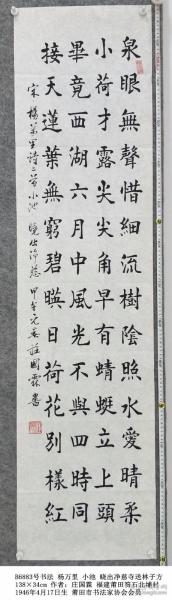 泉眼無聲惜細流樹陰照水愛晴柔
小荷才露尖尖角早有蜻蜓立上頭
畢竟西湖六月中風光不與四時同
接天蓮葉無窮碧映日荷花別樣紅
宋楊萬里詩二首小池 曉出淨慈 甲午元春莊國霖書
B6883号书法 杨万里 小池 晓出净慈寺送林子方
138×34cm 作者：庄国霖 福建莆田笏石北埔村
1946年4月17日生 莆田市书法家协会会员